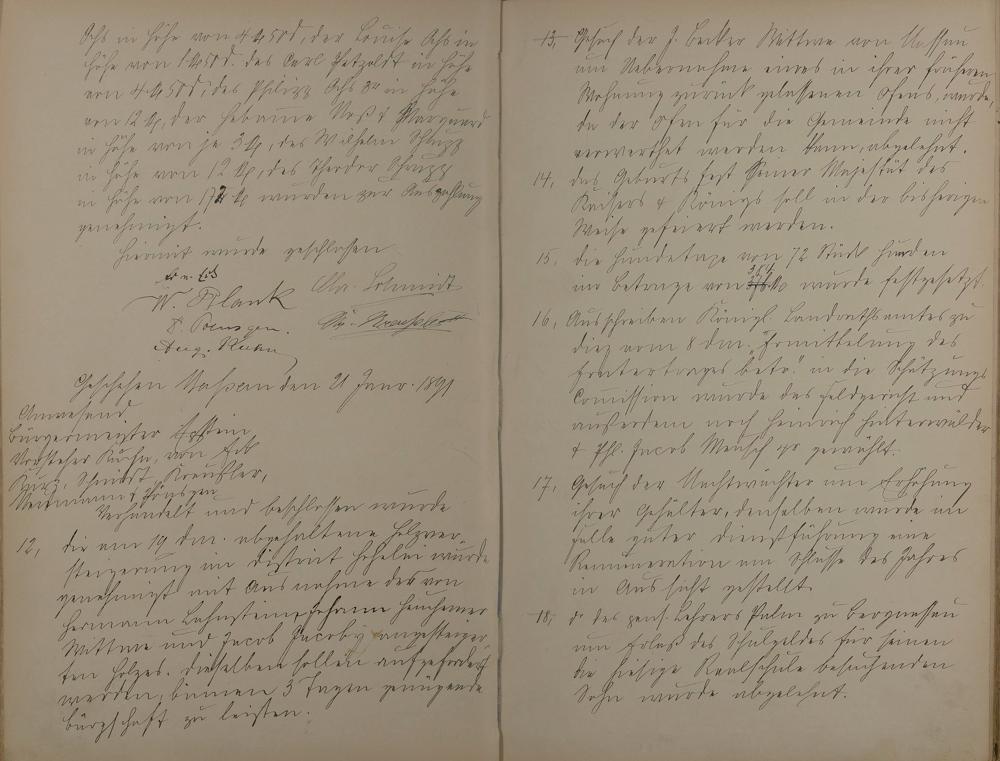 Ochs in Höhe von 4 M 50 d, der Louise Ochs in
Höhe von 1 M 50 d. des Carl Petzoldt in Höhe
von 4 M 50 d, des Philipp Ochs 3r in Höhe
von 12 M, der Hebamme Neß & Marquard
in Höhe von je 3 M, des Wilhelm Schupp
in Höhe von 12 M, des Theodor Schupp
in Höhe von 172 M wurden zur Auszahlung
genehmigt.
Hiermit wurde geschlossen
W. Plank Chr. Schmidt
Aug. Kuhn
Geschehen Nassau den 21 Janr. 1891
Anwesend
Bürgermeister Epstein
Vorsteher Kuhn, von Erb
Kurz, Schmidt, Kreußler,
Verhandelt und beschlossen wurde
12, die am 19 dM. abgehaltene Holzver-
steigerung im District Hohelei wurde
genehmigt mit Ausnahme des von
Hermann Lahnstein, Johann Heuchemer
Wittwe und Jacob Jacoby angesteiger
ten Holzes. Dieselben sollen aufgefordert
werden, binnen 3 Tagen genügende
Bürgschaft zu leisten.
13, Gesuch der J. Becker Wittwe von Nassau
um Uebernahme eines in ihrer früheren
Wohnung zurück gelassenen Ofens, wurde,
da der Ofen für die Gemeinde nicht
verwerthet werden kann, abgelehnt.
14, das Geburtsfest Seiner Majestät des
Kaisers & Königs soll in der bisherigen
Weise gefeiert werden.
15, die Hundetaxe von 72 Stück Hunden
im Betrage von M wurde festgesetzt.
16, Ausschreiben Königl. Landrathsamtes zu
Diez vom 8 dM. "Ermittelung des
Ernteertrages betr." in die Schätzungs
Comission wurde das Feldgericht und
außerdem noch Heinrich Hinterwälder
& Phl. Jacob Mensch gr gewählt.
17, Gesuch der Nachtwächter um Erhöhung
ihrer Gehälter, denselben wurde im
Falle guter Dienstführung eine
Remuneration am Schlusse des Jahres
in Aussicht gestellt.
18, do des pens. Lehrers Palm zu Bergnassau
um Erlaß des Schulgeldes für seinen
die hiesige Realschule besuchenden
Sohn wurde abgelehnt.